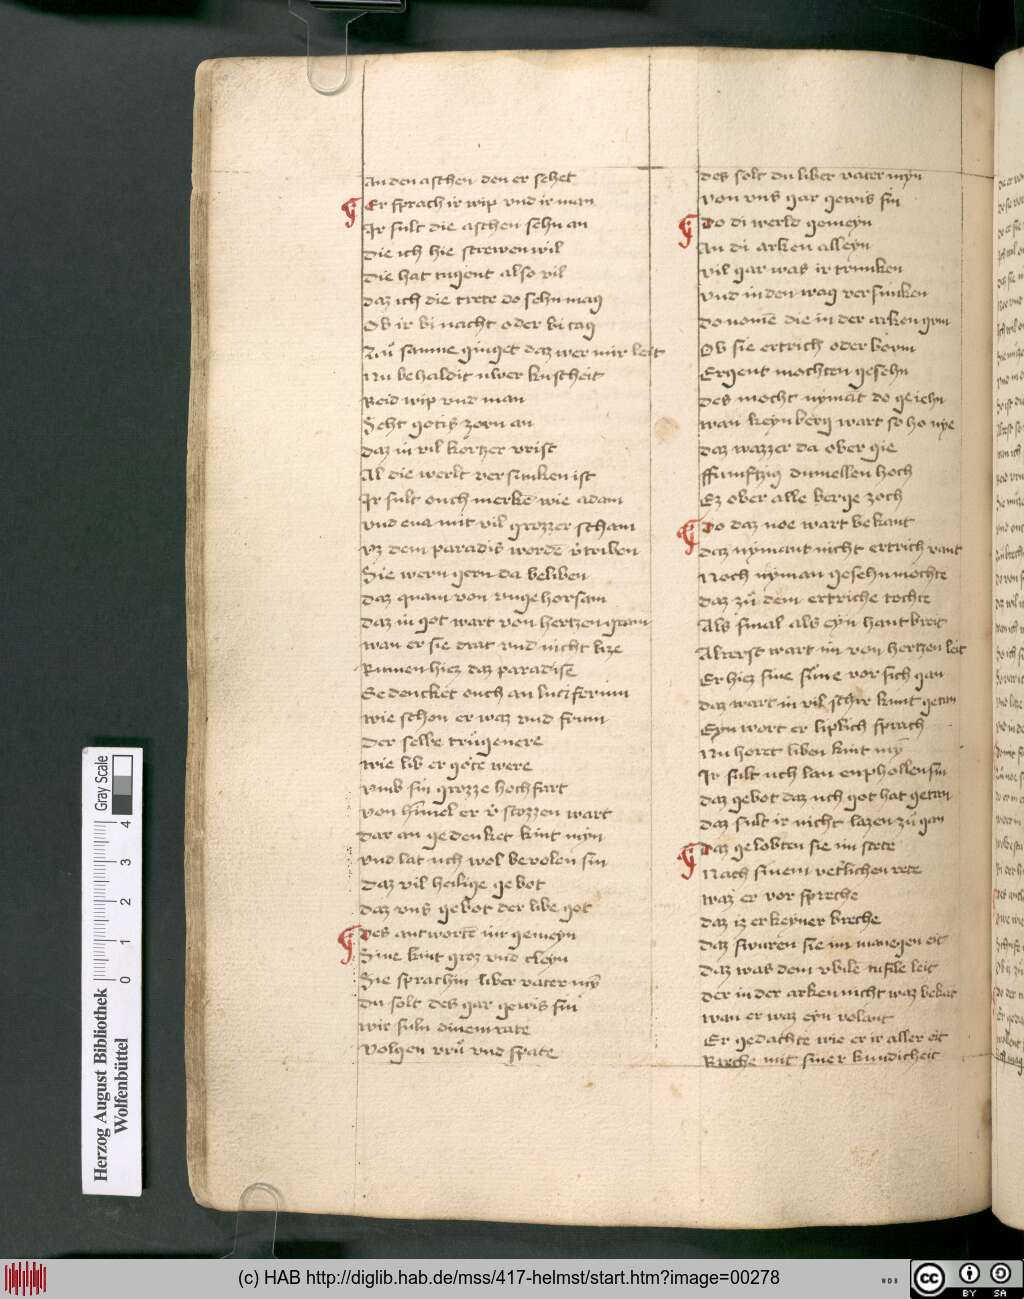 An den aschen den er sehet
Er sprach ir wip vnd ir man
Jr sult die aschen sehn an
Die ich hie strewen wil
Die hat tugent also vil
Daz ich die trete do sehn mag
Ob ir bi nacht oder bi tag
Zu samne ginget daz wer mir leit
Nu behaldit uwer kuscheit
Beid wip vnd man
Seht gotis zorn an
Daz in vil kortzer vrist
Al die werlt versunken ist
Jr sult ouch merkē wie adam
vnd eua mit vil grozzer scham
vz dem paradis wordē v̄triben
Sie wern gern da beliben
Daz quam von vngehorsam
Daz in got wart von hertzen gram
wan er sie drat vnd nicht lize
Rumen hiez daz paradise
Gedencket ouch an luciferum
wie schon er waz vnd frum
Der selbe trugenere
wie lib er gote were
vmb sin grozze hochfart
von himel er v̄stozzen wart
Dar an gedenket kint myn
vnd lat uch wol bevolen sin
Daz vil heilige gebot
Daz vns gebot der libe got
Des antwortē im gemeyn
Sine kint groz vnd cleyn
Sie sprachin liber vater my̅
Du solt des gar gewis sin
wir suln dinem rate
volgen vru vnd spate
Des solt du liber vater myn
von vns gar gewis sin
Do di werld gemeyn
An di arken alleyn
vil gar was ir trunken
vnd in den wag versunken
Do nomē die in der arken
Ob sie ertrich oder borm
Ergent mochten gesehn
Des mocht nymāt do geiehn
wan keyn berg wart so ho nye
Daz wazzer da ober gie
ffumftzig dumellen hoch
Ez ober alle berge zoch
Do daz noe wart bekant
Daz nymant nicht ertrich vant
Noch nyman gesehn mochte
Daz zu dem ertriche tochte
Als smal als eyn hant breit
Alrerst wart im von hertzen leit
Er hiez sine sune vor sich gan
Daz wart in vil schir kunt getan
Eyn wort er liplich sprach
Nu horet liben kint my̅
Jr sult uch lan enphollen sin
Daz gebot daz uch got hat getan
Daz sult ir nicht lazen zu gan
Daz gelobten sie im stete
Nach sinem vetlichen rete
waz er vor spreche
Daz iz er keyner breche
Daz swuren sie im manegen eit
Daz was dem vbile tufile leit
Der in der arken nicht waz bekāt
wan er waz eyn volant
Er gedachte wie er ir aller eit
Breche mit siner kundicheit
Herzog August Bibliothek
Wolfenbüttel
0 1 2 3 4
Gray Scale
(c) HAB http://diglib.hab.de/mss/417-helmst/start.htm?image=00278
WDB
cc
BY SA